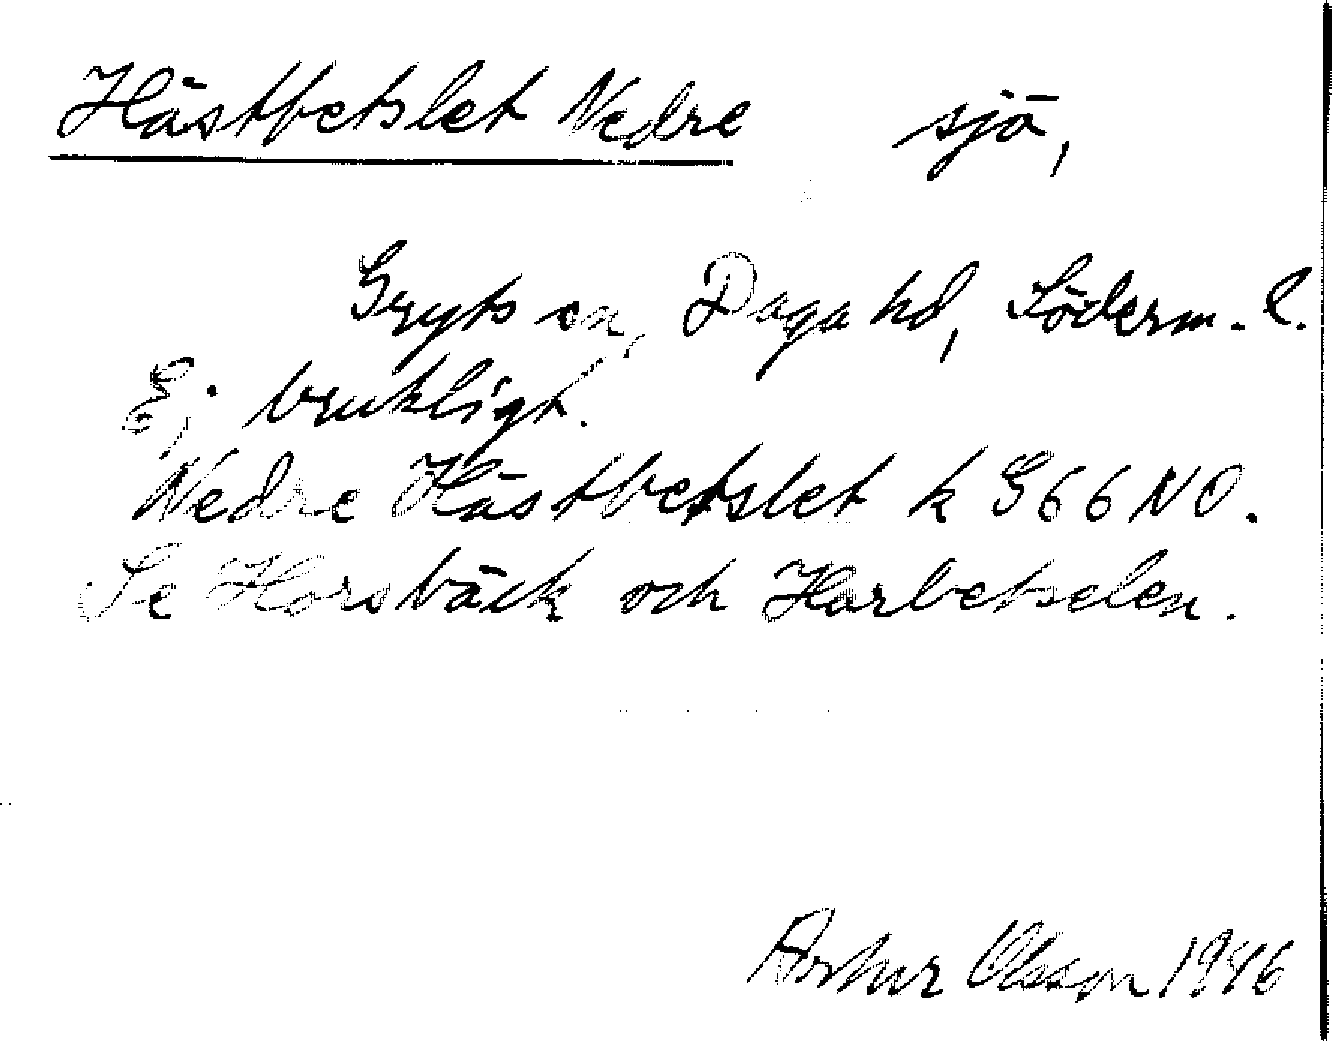 Hästbetslet Nedre sjö,
Gryts sn, Daga hd, Söderm. l.
Ej brukligt.
Nedre Hästbetslet k G66NO.
Se Horsbäck och Harbetselen.
Arthur Olsson 1946